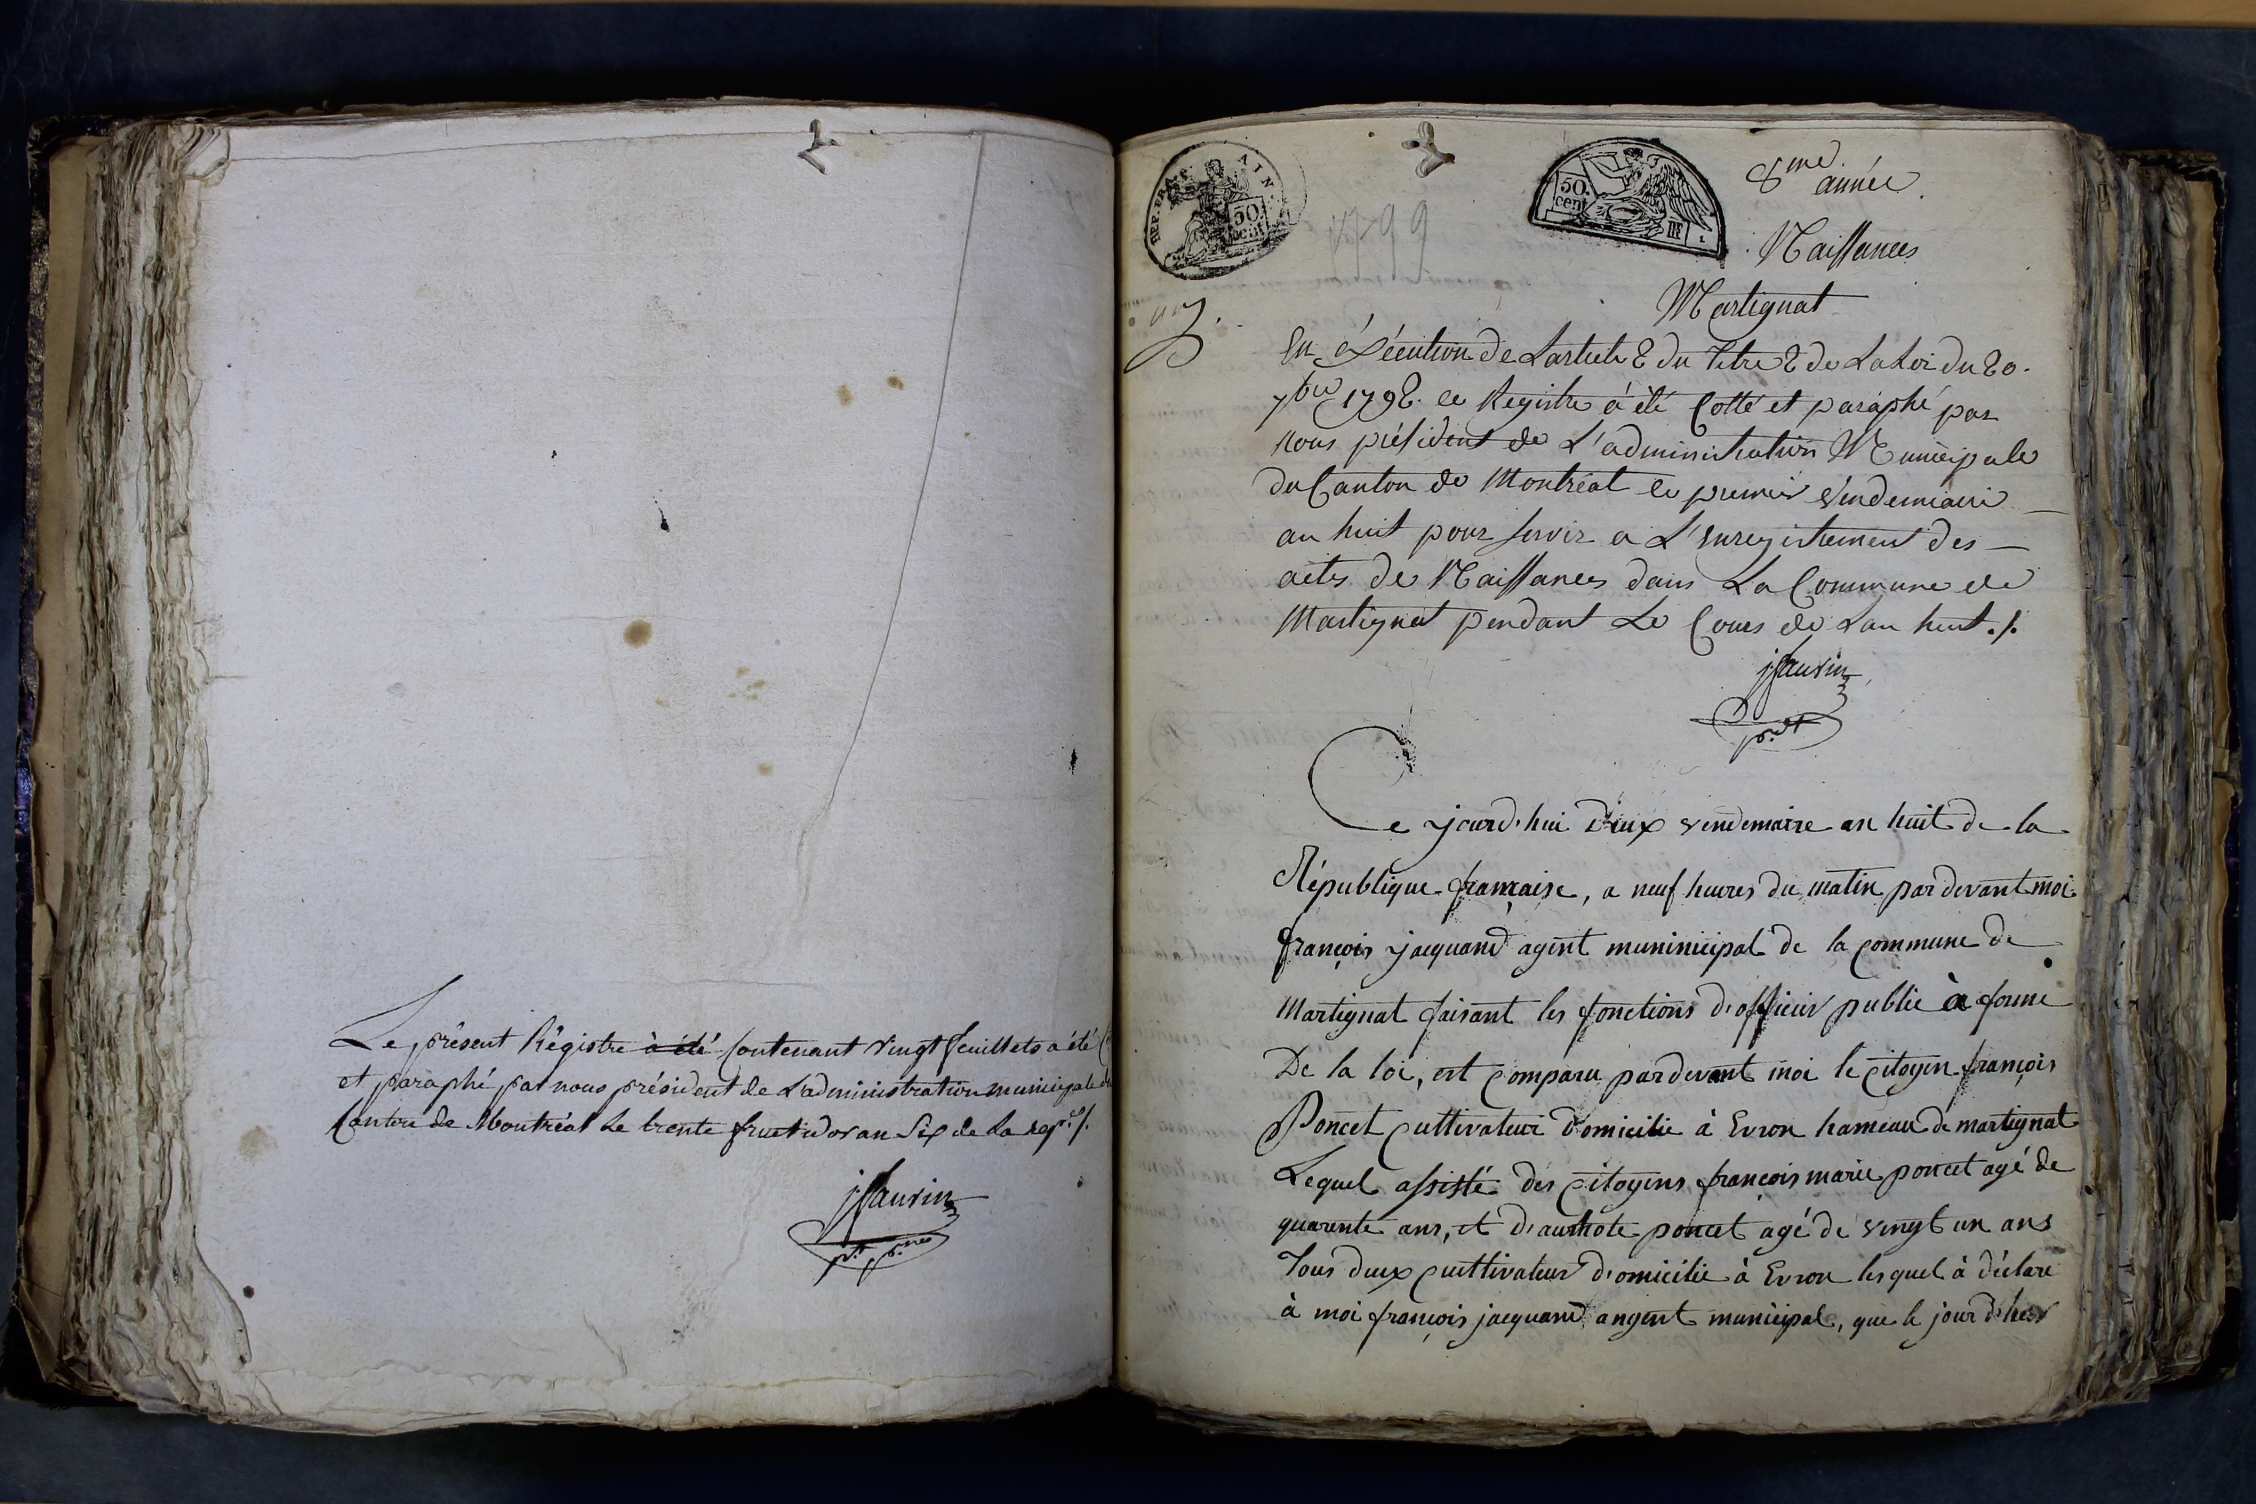 Le présent Régistre à été contenant vingt feuillets a été
et paraphé par nous président de L'administration municipale du
Canton de Montréal le trente fructidor an Six de La rep.e /.
jSauvin
REP. FRA. AIN
50. cent
1799
50. cent
8me année.
Naissances
Martignat
En éxécution de Larticle 2 du Titre 2 de La Loi du 20.
7bre 1792. ce Registre a été Cotté et paraphé par
nous président de L'administration Municipale
du Canton de Montréal le premier Vendemiaire
an huit pour servir a L'Enregistrement des
actes de Naissances dans La Commune de
Martignat pendant Le Cours de Lan huit./.
jSauvin
p.dt
Ce yjourd'hui Deux vendemaire an huit de la
République française, a neuf heures du matin pardevant moi
françois yjacquand agent muninicipal de la commune de
Martignat faisant les fonctions d'officier public à forme
De la loi, est comparu pardevant moi le citoyen françois
Poncet cultivateur Domicilie à Evron hameau de martignat
Lequel assisté des citoyens françois marie poncet agé de
quarente ans, et d'authote poncet agé de vingt un ans
Tous deux cultivateur domicilie à Evron lesquel à déclaré
à moi françois jacquand angent municipal, que le jour d'hier